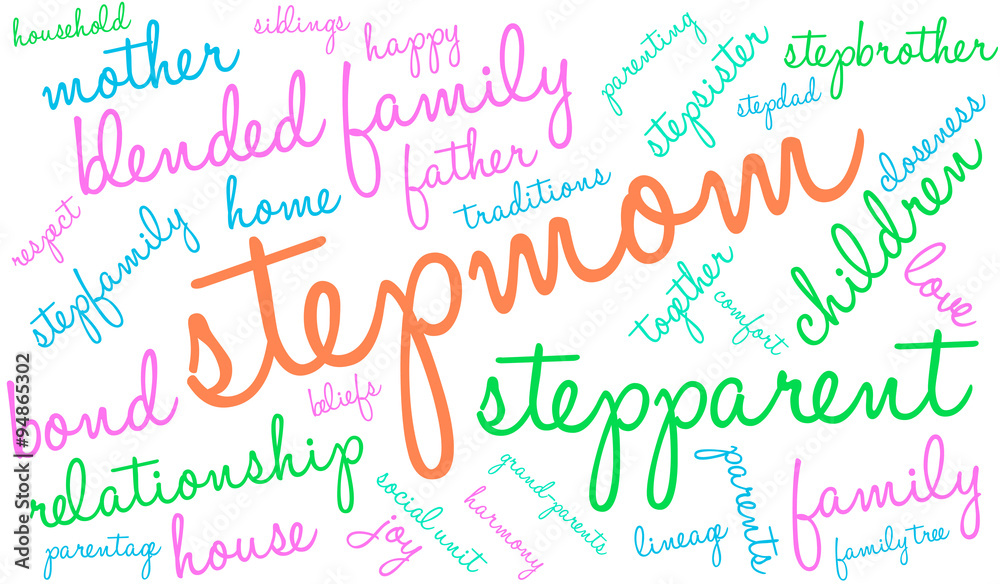 household
siblings
happy
mother
blended family
parenting
stepsister
stepbrother
stepdad
father
closeness
respect
stepfamily
home
traditions
stepmom
children
together
comfort
love
bond
beliefs
stepparent
relationship
social unit
grand-parents
parents
family
parentage
house
joy
harmony
lineage
family tree
Adobe Stock | #94865302